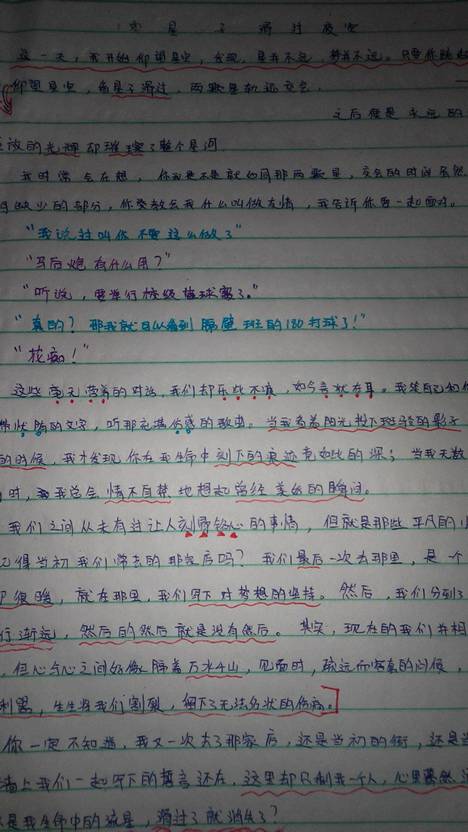 流星了滑过夜空
这一天，我开始仰望星空，发现，星并不远，梦并不远，只要你踮起
仰望星空，流星了滑过，两颗星轨迹交会，
之后便是永远的
绽放的光辉却璀璨了整个星河
我时常会在想，你我是不是就如同那两颗星，交会的时间虽然
缺少的部分，你要教会我什么叫做友情，我告诉你要一起面对。
“我说过叫你不要这么做了”
“马后炮有什么用？”
“听说，要举行校级篮球赛了。”
“真的？那我就可以看到隔壁班的180打球了！”
“花痴！”
这些毫无营养的对话，我们却乐此不疲，如今言犹在耳。我凭自己
忧伤的文字，听那充满伤感的歌曲。当我看着阳光投下斑驳的影子
的时候，我才发现你在我生命中刻下的痕迹竟如此的深；当我无数
时，我总会情不自禁地想起曾经美好的瞬间。
我们之间从未有过让人刻骨铭心的事情，但就是那些平凡的
记得当初我们常去的那家店吗？我们最后一次去那里，是一个
很晚，就在那里，我们写下对梦想的坚持。然后，我们分到了
行渐远，然后的然后就是没有然后。其实，现在的我们并相
，但心与心之间好像隔着万水千山，见面时，疏远而客套的问候，
利器，生生将我们割裂，留下了无法名状的伤痛。
你一定不知道，我又一次去了那家店，还是当初的街，还是当
墙上我们一起写下的誓言还在，这里却只剩我一个人，心里蓦然
是我生命中的流星，滑过了就消失了？